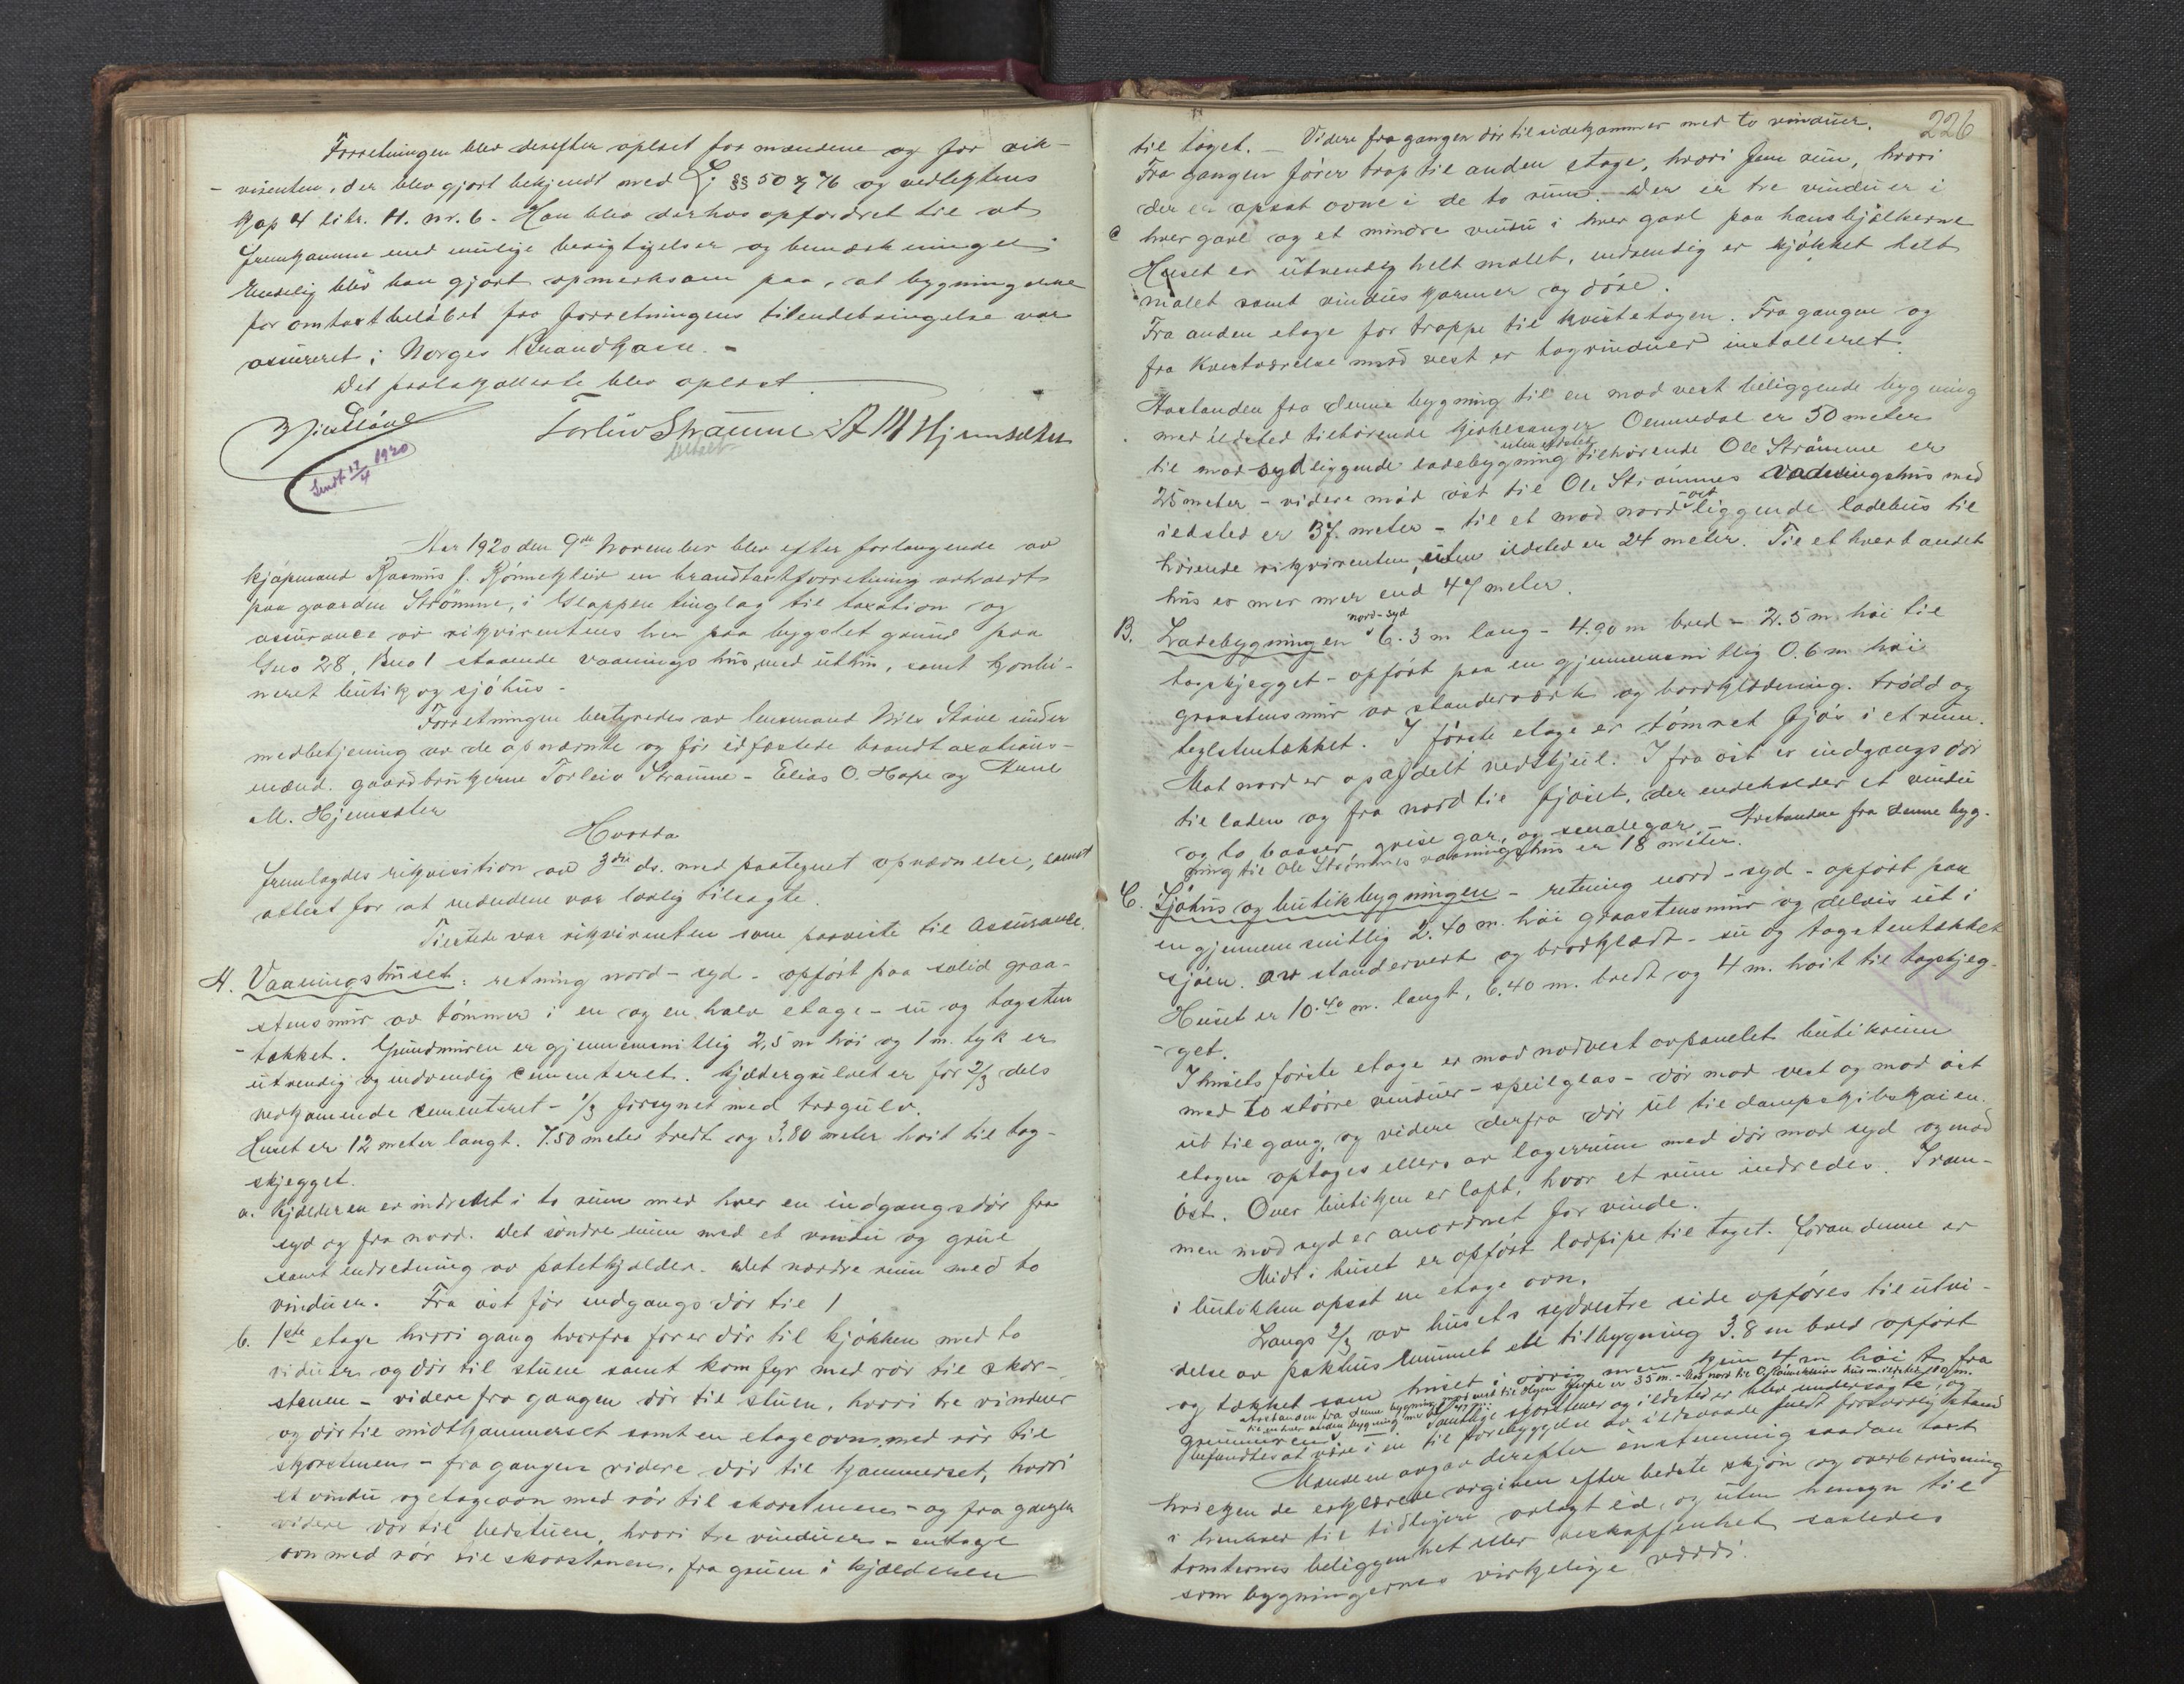 Forretningen blev derefter oplæst for mændene og for rek-
- virenten, der blev gjort bekjendt med L. §§ 50 & 76 og vedtektens
Kap 4 litr. A. nr. 6. Han blev derhos opfordret til at
fremkomme med mulige besigtigelser og bemerkninger.
Endelig blev han gjort opmerksom paa, at bygningerne
for omtaxtbeløbet fra forretningens tilendebringelse var
assureret i Norges Brandkasse. -
Det protokollerte blev oplæst
Torleiv Strømme A M Hjemsæter
Sendt 17/4 1920
Aar 1920 den 9de november blev efter forlangende av
kjøpmand Rasmus J. Rønnekleiv en brandtaxtforretning avholdt
paa gaarden Strømme, i Klappen tinglag til taxation og
assurance av rekvirentens her paa bygslet grund paa
Gno 28, Bno 1 staaende vaaningshus med uthus, samt kombi-
neret butik og sjøhus -
Forretningen bestyredes av lensmand Nils Støve under
medbetjening av de opnævnte og før edfæstede brandtaxations-
mænd. gaardbrukerne Torleiv Strømme - Elias O. Hope og Anne
M. Hjemsæter
Hvorda
fremlagdes rekvisition av 3die ds. med paategnet opnævnelse, samt
attest for at mændene var lovlig tilsagte.
Tilstede var rekvirenten som paaviste til Assurance.
A. Vaaningshuset: retning nord - syd - opført paa solid graa-
stensmur av tømmer i en og en halv etage - su og tagsten
- tækket. Grundmuren er gjennemsnitlig 2,5 m høi og 1 m. tyk er
utvendig og indvendig cementeret. Kjældergulvet er for 2/3 dels
vedkommende cementeret - 1/3 forsynet med trægulv.
Huset er 12 meter langt. 7.50 meter bredt og 3.80 meter høit til tag-
skjegget.
a. Kjælderen er indredet i to rum med hver en indgangsdør fra
syd og fra nord. Det søndre rum med et vindu og grue
samt indredning av potetkjælder. Det nordre rum med to
vinduer. Fra øst før indgangsdør til 1
b. 1ste etage hvori gang hvorfra fører dør til kjøkken med to
viduer og dør til stuen samt komfyr med rør til skor-
stenen - videre fra gangen dør til stuen, hvori tre vinduer
og dør til midtkammerset samt en etageovn med rør til
skorstenen - fra gangen videre dør til kammerset, hvori
et vindu og etageovn med rør til skorstenen - og fra gangen
videre dør til bedstuen, hvori tre vinduer - en etage
ovn med rør til skorstenen, fra gruen i kjælderen
226
til taget. - Videre fra gangen dør til sidekammer med to vinduer.
Fra gangen fører trap til anden etage, hvori fem rum, hvori
der er opsat ovne i de to rum. Der er tre vinduer i
c hver gavl og et mindre vindu i hver gavl paa hansbjælkerne
Huset er utvendig helt malet, indvendig er kjøkket helt
malet samt vinduskarmer og døre.
Fra anden etage før trappe til kvistetagen. Fra gangen og
fra kvistværelse mod vest er tagvinduer installeret.
Avstanden fra denne bygning til en mod vest beliggende bygning
med ildsted tilhørende kirkesanger Oenuedal er 50 meter
til mod syd liggende ladebygning uten ildsted tilhørende Ole Strømme er
25 meter - videre mod øst til Ole Strømmes vaaningshus med
ildsted er 37. meter - til et mod nord-øst liggende ladehus til
hørende rekvirenten, uten ildsted er 24 meter. Til et hvert andet
hus er mer mer end 47 meter.
B. Ladebygningen nord-syd 6.3 m lang - 4.90 m bred - 2.5 m. høi til
tagskjegget - opført paa en gjennemsnitlig 0.6 m høi
graastensmur av standerværk og bordklædning. trødd og
teglstentækket. I første etage er tømret fjøs i et rum.
Mot nord er opafdelt vedskjul. I fra øst er indgangsdør
til laden og fra nord til fjøset, der indeholder et vindu
og to baaser, grise gar, og smalegar. - Avstanden fra denne byg-
ning til Ole Strømmes vaaningshus er 18 meter.
C. Sjøhus og butikbygningen - retning nord - syd - opført paa
en gjennemsnitlig 2.40 m. høi graastensmur og delvis ut i
sjøen. av standervert og bordklædt - su og tagstentækket
Huset er 10.40 m. langt, 6.40 m. bredt og 4 m. høit til tagskjeg-
- get.
I husets første etage er mod nordvest avpanelet butikrum
med to større vinduer - speilglas - dør mod vest og mod øst
ut til gang, og videre derfra dør ut til dampskibskaien.
etagen optages ellers av lagerrum med dør mod syd og mod
øst. Over butiken er loft, hvor et rum indredes. Iram-
men mod syd er anordnet for vinde.
Midt i huset er opført lodpipe til taget. Foran denne er
i butikken opsat en etage ovn.
Langs 2/3 av husets sydvestre side opføres til utvi-
delse av pakhusrummet ett tilbygning 3.8 m bred opført
og tækket som huset i øvrig men kun 4 m høi fra
grunmuren.
Avstanden fra denne bygning mod vest til Olger Hope er 35 m. - Mod nord til O. Rønnekleivs hus m. ildsted 100 m.
til enhver anden bygning mer end 47 m.
Samtlige skorstener og ildsteder blev undersøgte, og
befandtes at være i en til forebyggelse av ildsvaade fuldt forsvarlig stand
Mændene avgav derefter enstemmig saadan taxt
hvilken de erklærede avgiven efter bedste skjøn og overbevisning
i henhold til tidligere avlagt ed, og uten hensyn til
tomternes beliggenhet eller beskaffenhet saaledes
som bygningernes virkelige værdi.